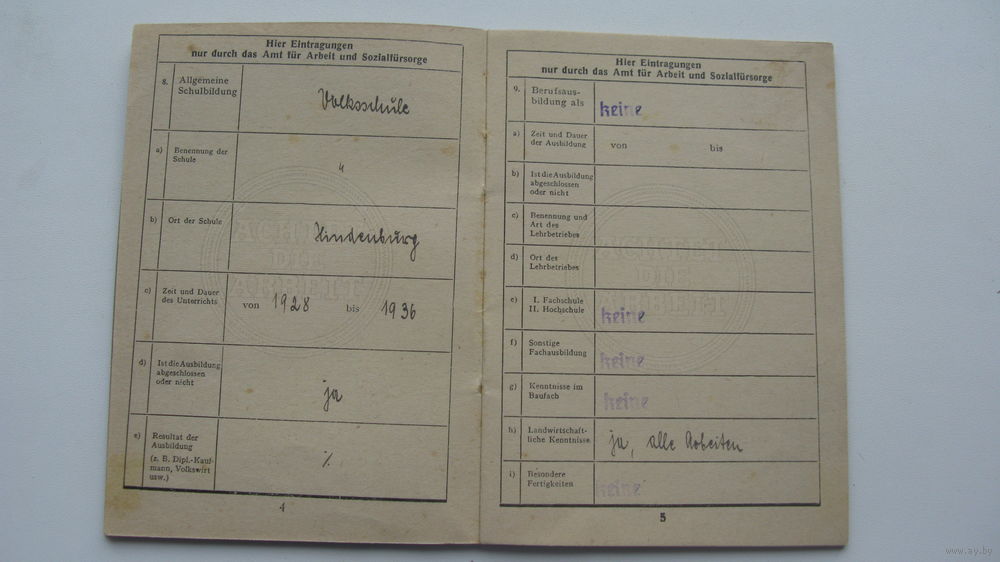 Hier Eintragungen
nur durch das Amt für Arbeit und Sozialfürsorge
8. Allgemeine
Schulbildung
Volksschule
a) Benennung der
Schule
4
b) Ort der Schule
Hindenburg
c) Zeit und Dauer
des Unterrichts
von 1928 bis 1936
d) Ist die Ausbildung
abgeschlossen
oder nicht
ja
e) Resultat der
Ausbildung
(z. B. Dipl.-Kauf-
mann, Volkswirt
usw.)
⁒
4
Hier Eintragungen
nur durch das Amt für Arbeit und Sozialfürsorge
9. Berufsaus-
bildung als
keine
a) Zeit und Dauer
der Ausbildung
von bis
b) Ist die Ausbildung
abgeschlossen
oder nicht
c) Benennung und
Art des
Lehrbetriebes
d) Ort des
Lehrbetriebes
e) I. Fachschule
II. Hochschule
keine
f) Sonstige
Fachausbildung
keine
g) Kenntnisse im
Baufach
keine
h) Landwirtschaft-
liche Kenntnisse
ja, alle Arbeiten
i) Besondere
Fertigkeiten
keine
5
www.ay.by